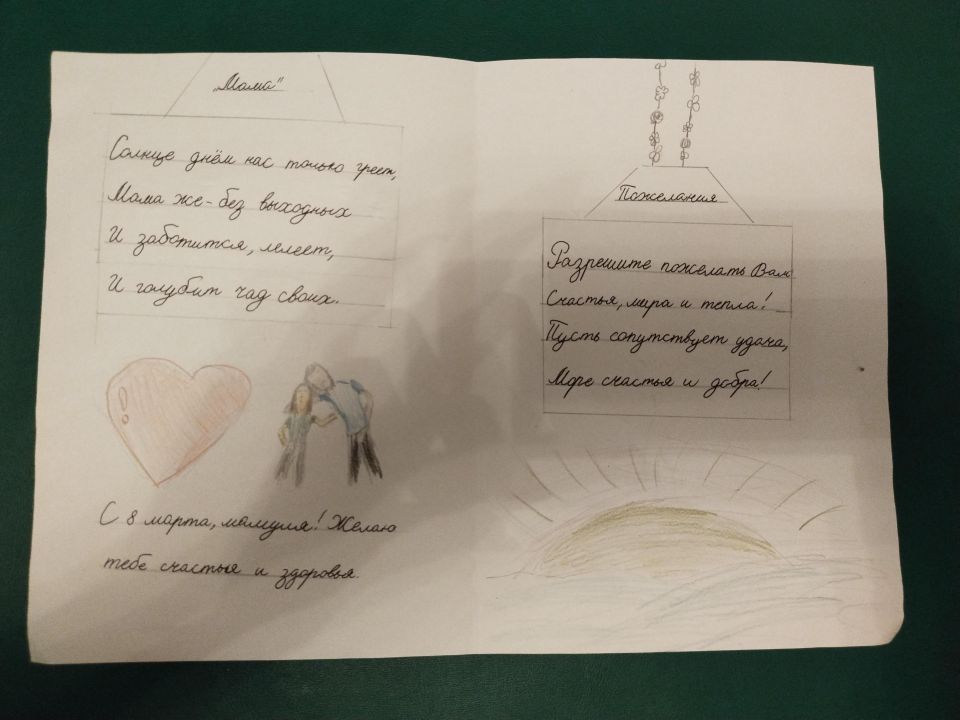 „Мама"
Солнце днём нас только греет,
Мама же - без выходных
И заботится, лелеет,
И голубит чад своих.
С 8 марта, мамуля! Желаю
тебе счастья и здоровья.
Пожелания
Разрешите пожелать Вам
Счастья, мира и тепла!
Пусть сопутствует удача,
Море счастья и добра!